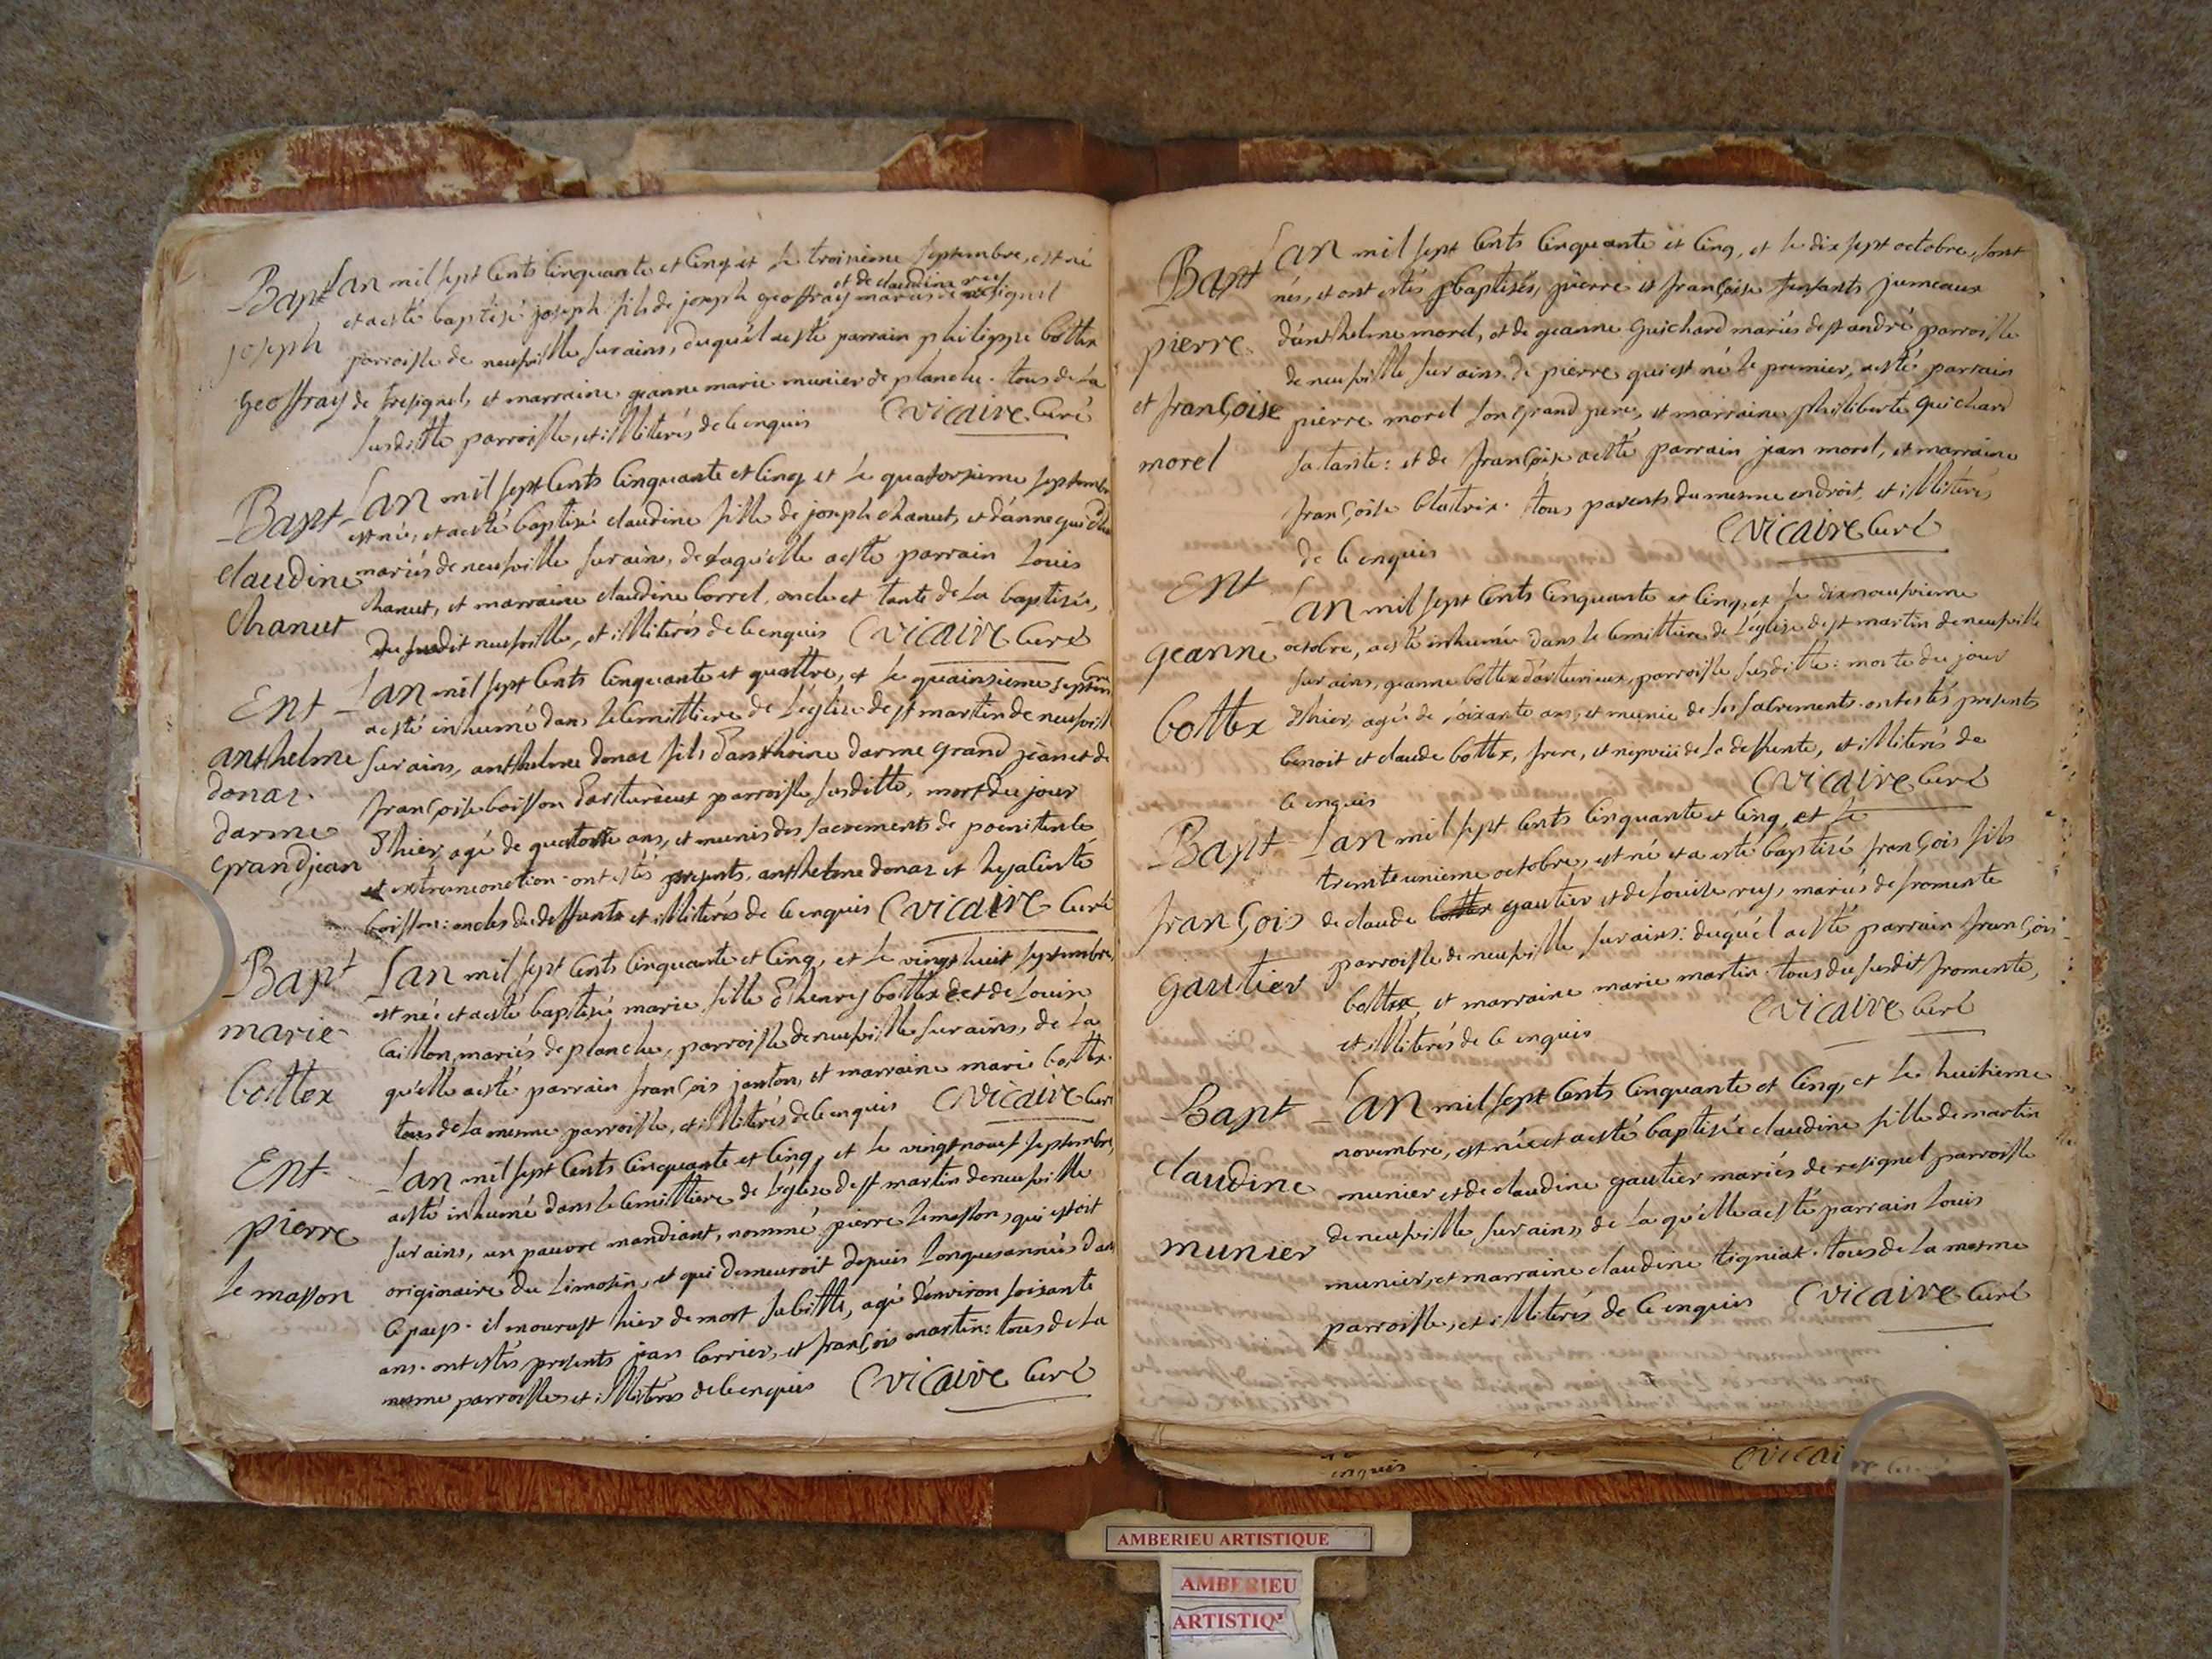 Bapt
joseph
geoffray
Lan mil sept Cents Cinquante et Cinq et le troisieme septembre, est né
et de claudine rey
et a esté baptisé joseph fils de joseph geoffray mariés de resignel
parroisse de neufville sur ains, duquél a esté parrain philippe bottex
de resignel, et marraine geanne marie munier de planche. tous de la
susditte parroisse, et illiterés de ce enquis Cvicaire Curé
Bapt
claudine
chanut
Lan mil sept Cents Cinquante et Cinq et le quatorsieme septembre
est né, et a esté baptisé claudine fille de joseph chanut, et d'anne
mariés de neufville sur ains, de laqu'elle a esté parrain Louis
chanut, et marraine claudine Correl, oncle et tante de la baptisée,
du susdit neufville, et illiterés de ce enquis Cvicaire Curé
Ent
anthelme
donat
darme
grandjean
Lan mil sept Cents Cinquante et quattre, et le quainsieme septem
a esté inhumé dans le Cemittiere de l'église de st martin de neufville
sur ains, anthelme donat fils d'anthoine darme grand jean et de
françoise boisson d'arturieux parroisse susditte, mort du jour
d'hier, agé de quatorse ans, et munis des sacrements de poenitence
et extremeonction. ont estés presents, anthelme donat et hyacinte
boisson: oncles du deffunts et illiterés de ce enquis Cvicaire Curé
Bapt
marie
bottex
Lan mil sept Cents Cinquante et Cinq, et le vingt huit septembre,
est né, et a esté baptisé marie fille d'henry bottex et de Louise
Caillon, mariés de planche, parroisse de neufville sur ains, de la
qu'elle a esté parrain françois janton, et marraine marie bottex.
tous de la mesme parroisse, et illiterés de ce enquis Cvicaire Curé
Ent
pierre
le masson
Lan mil sept Cents Cinquante et Cinq, et le vingt nouef septembre,
a esté inhumé dans le Cemittiere de l'église de st martin de neufville
sur ains, un pauvre mandiant, nommé pierre le masson, qui estoit
originaire du Limosin, et qui demeuroit depuis Longues années dans
Ce pays. il mourust hier de mort subitte, agé d'environ soixante
ans. ont estés presents jean Carrier, et françois martin: tous de la
mesme parroisse, et illiterés de ce enquis Cvicaire Curé
Bapt
pierre
et françoise
morel
Lan mil sept Cents Cinquante et Cinq, et le dix sept octobre, sont
nés, et ont estés baptisés, pierre et françoise enfants jumeaux
d'anthelme morel, et de geanne guichard mariés de st andré parroisse
de neufville sur ains. de pierre qui est né le premier, a esté parrain
pierre morel son grand pere, et marraine philiberte guichard
sa tante: et de françoise a esté parrain jean morel, et marraine
françoise Clatrix. tous parents du mesme endroit, et illiterés
de ce enquis Cvicaire Curé
Ent
geanne
bottex
Lan mil sept Cents Cinquante et Cinq, et le dixneufvieme
octobre, a esté inhumée dans le Cemittiere de l'église de st martin de neufville
sur ains, geanne bottex d'arturieux, parroisse susditte: morte du jour
d'hier, agée de soixante ans, et munie de ses sacrements. ont estés presents
benoit et claude bottex, frere, et nepveu de la deffunte, et illiterés de
ce enquis Cvicaire Curé
Bapt
françois
gautier
Lan mil sept Cents Cinquante et Cinq, et le
trente unieme octobre, est né et a esté baptisé françois fils
de claude bottex gautier et de Louise rey, mariés de fromente
parroisse de neufville sur ains: duquél a esté parrain françois
bottex, et marraine marie martin. tous du susdit fromente,
et illiterés de ce enquis Cvicaire Curé
Bapt
claudine
munier
Lan mil sept Cents Cinquante et Cinq, et le huitieme
novembre, est née et a esté baptisée claudine fille de martin
munier et de claudine gautier mariés de resignel parroisse
de neufville sur ains, de la qu'elle a esté parrain Louis
munier, et marraine claudine tigniat. tous de la mesme
parroisse, et illiterés de ce enquis Cvicaire Curé
enquis Cvicai
AMBERIEU ARTISTIQUE
AMBERIEU
ARTISTIQ